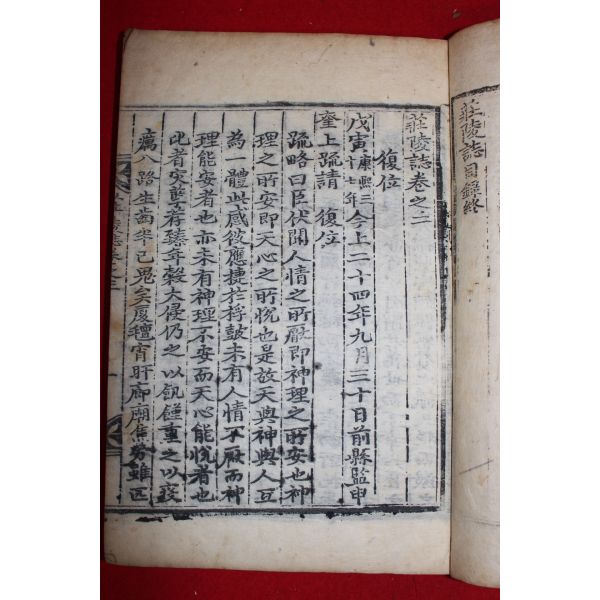 莊陵誌目錄終
莊陵誌卷之二
復位
戊寅康熙三十七年今上二十四年九月三十日前縣監申
奎上疏請 復位
疏略曰臣伏聞人情之所厭即神理之所安也神
理之所安即天心之所悅也是故天與神與人互
為一體此感彼應捷於桴鼓未有人情不厭而神
理能安者也亦未有神理不安而天心能悅者也
此者灾孽荐臻年穀大侵仍之以飢饉重之以疫
癘八路生齒半已鬼矣廈氊宵旰廊廟焦勞雖匹